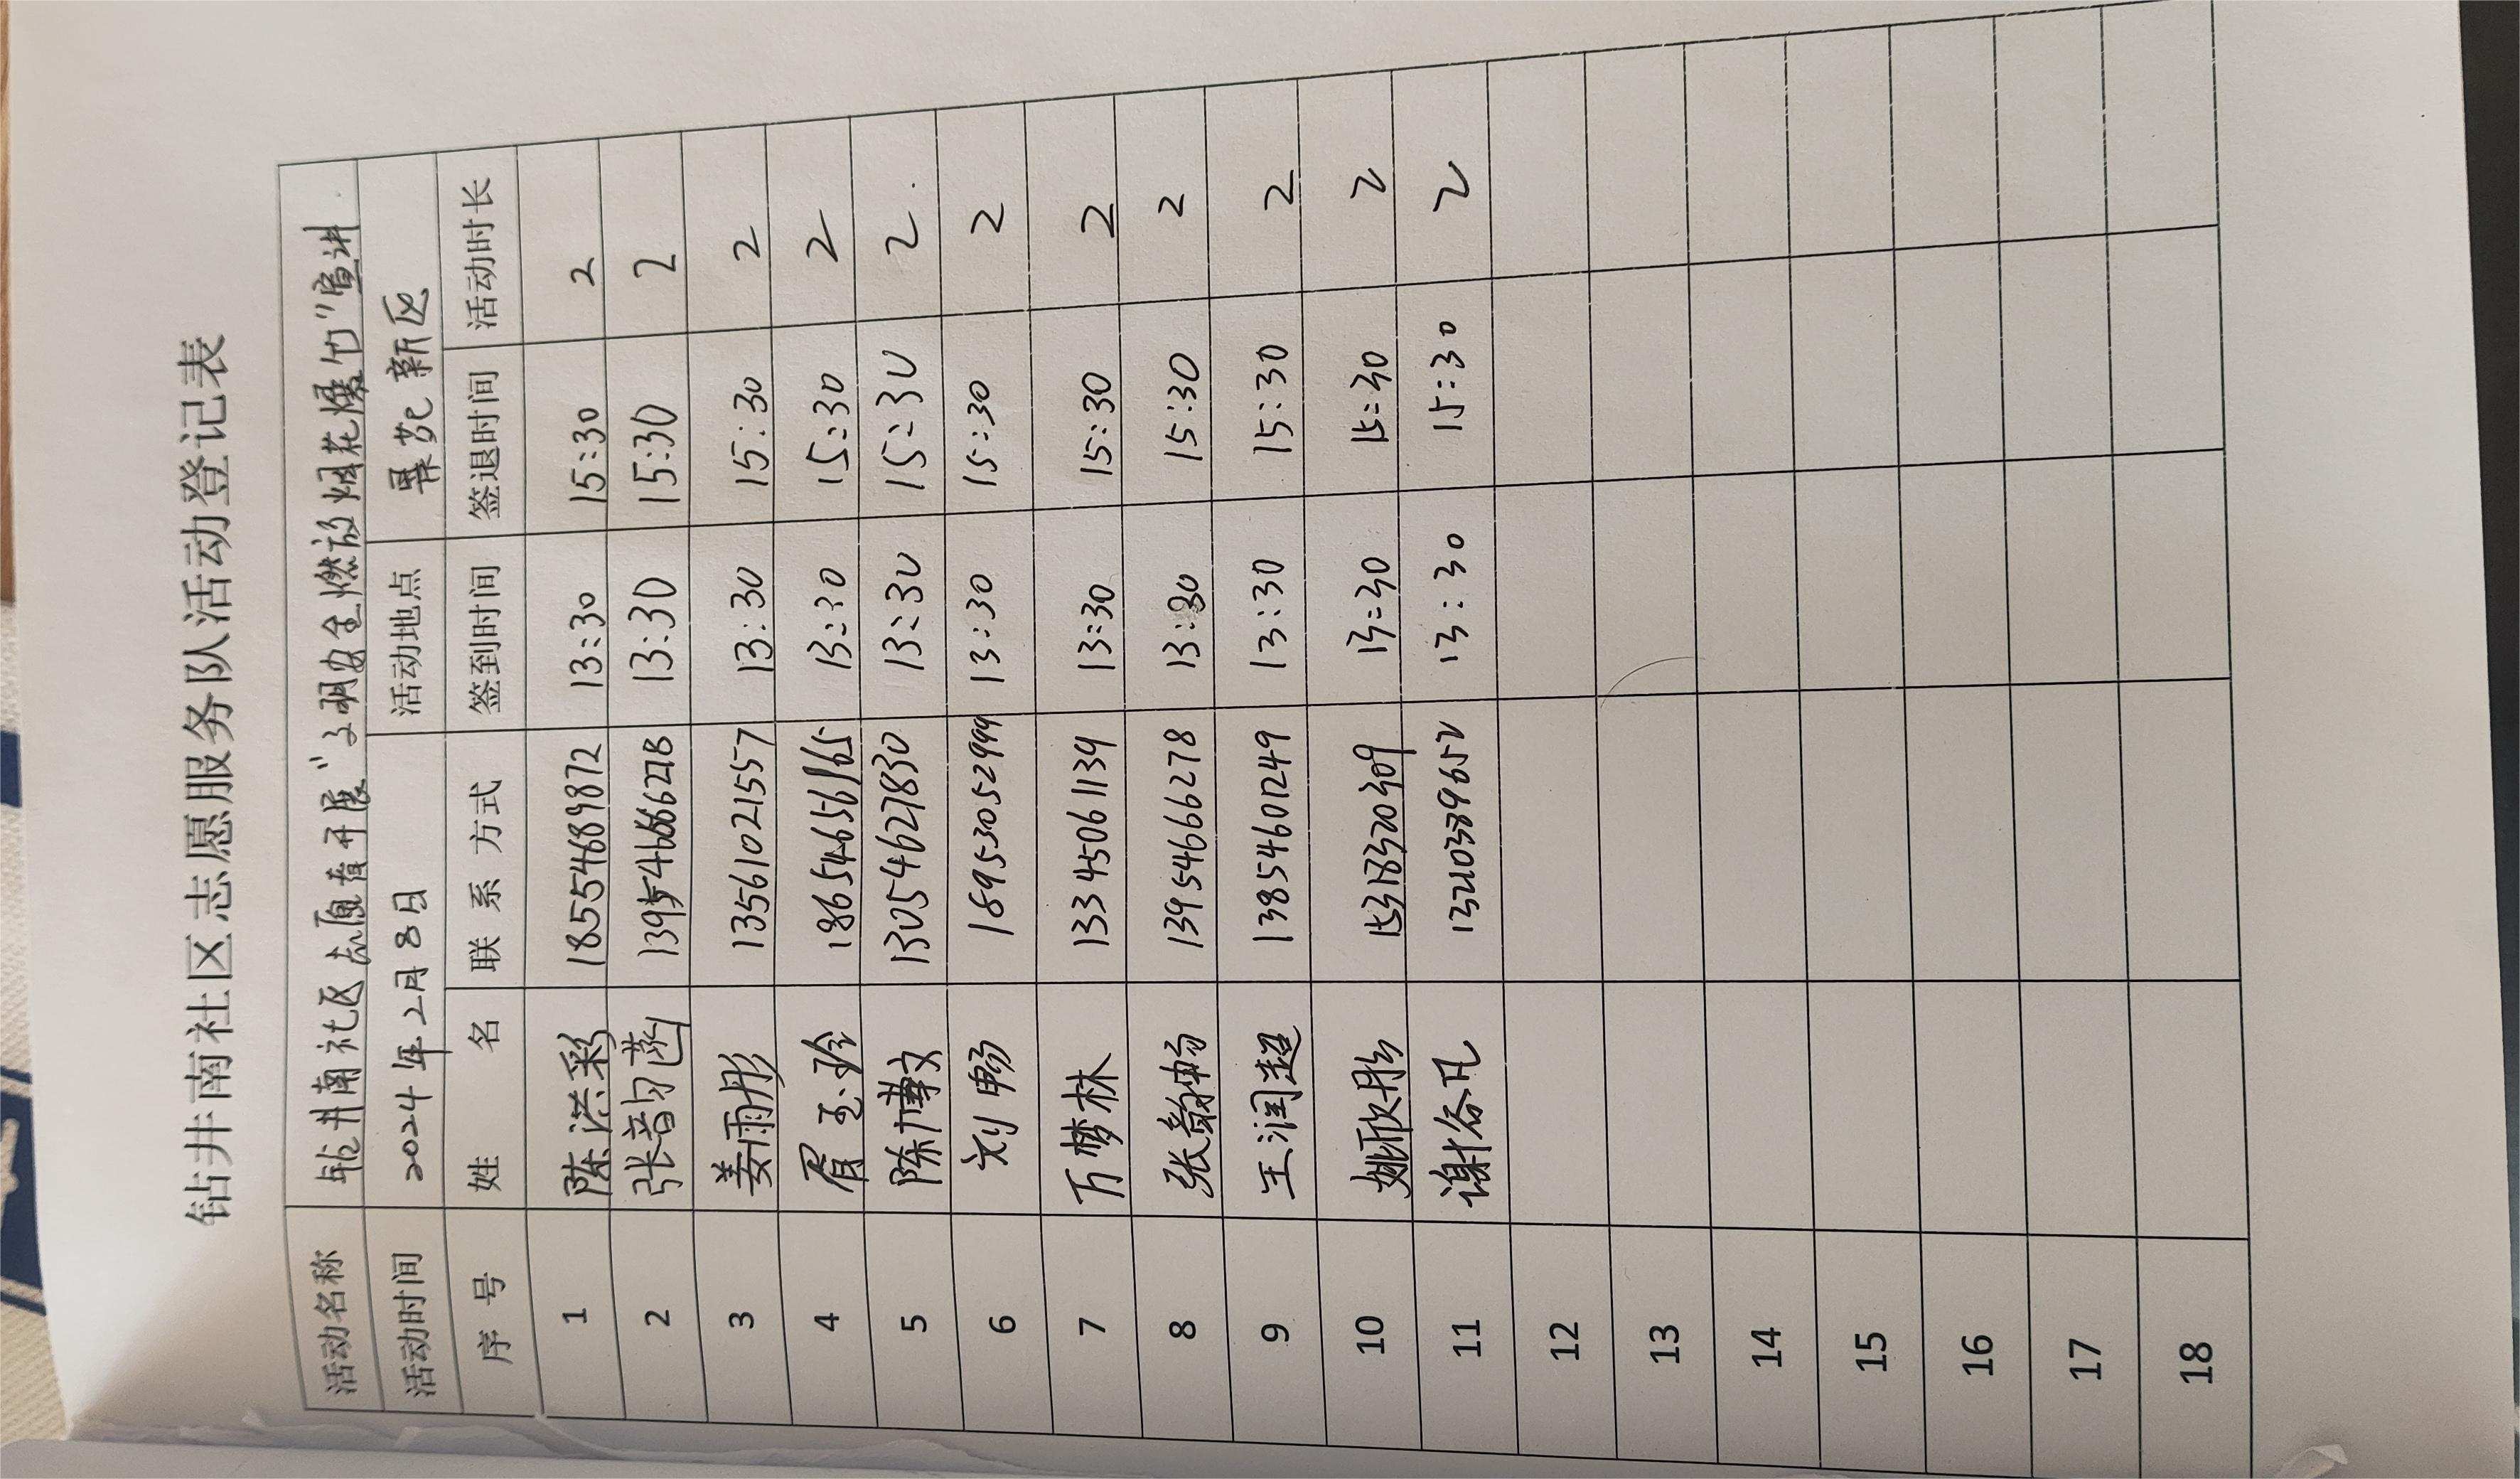 钻井南社区志愿服务队活动登记表
活动名称 钻井南社区志愿者开展"文明安全燃放烟花爆竹"宣讲
活动时间 2024年2月8日 活动地点 景苑新区
序号 姓名 联系方式 签到时间 签退时间 活动时长
1 陈洪彩 18554689872 13:30 15:30 2
2 张韵菡 13954666278 13:30 15:30 2
3 姜雨彤 13561021557 13:30 15:30 2
4 胥玉玲 18654656165 13:30 15:30 2
5 陈博文 13054627830 13:30 15:30 2
6 刘畅 18953052999 13:30 15:30 2
7 万梦林 13345061134 13:30 15:30 2
8 张韵畅 13954666278 13:30 15:30 2
9 王润超 13854601249 13:30 15:30 2
10 姚欣彤 15318320309 13:30 15:30 2
11 谢谷凡 13210389652 13:30 15:30 2
12
13
14
15
16
17
18